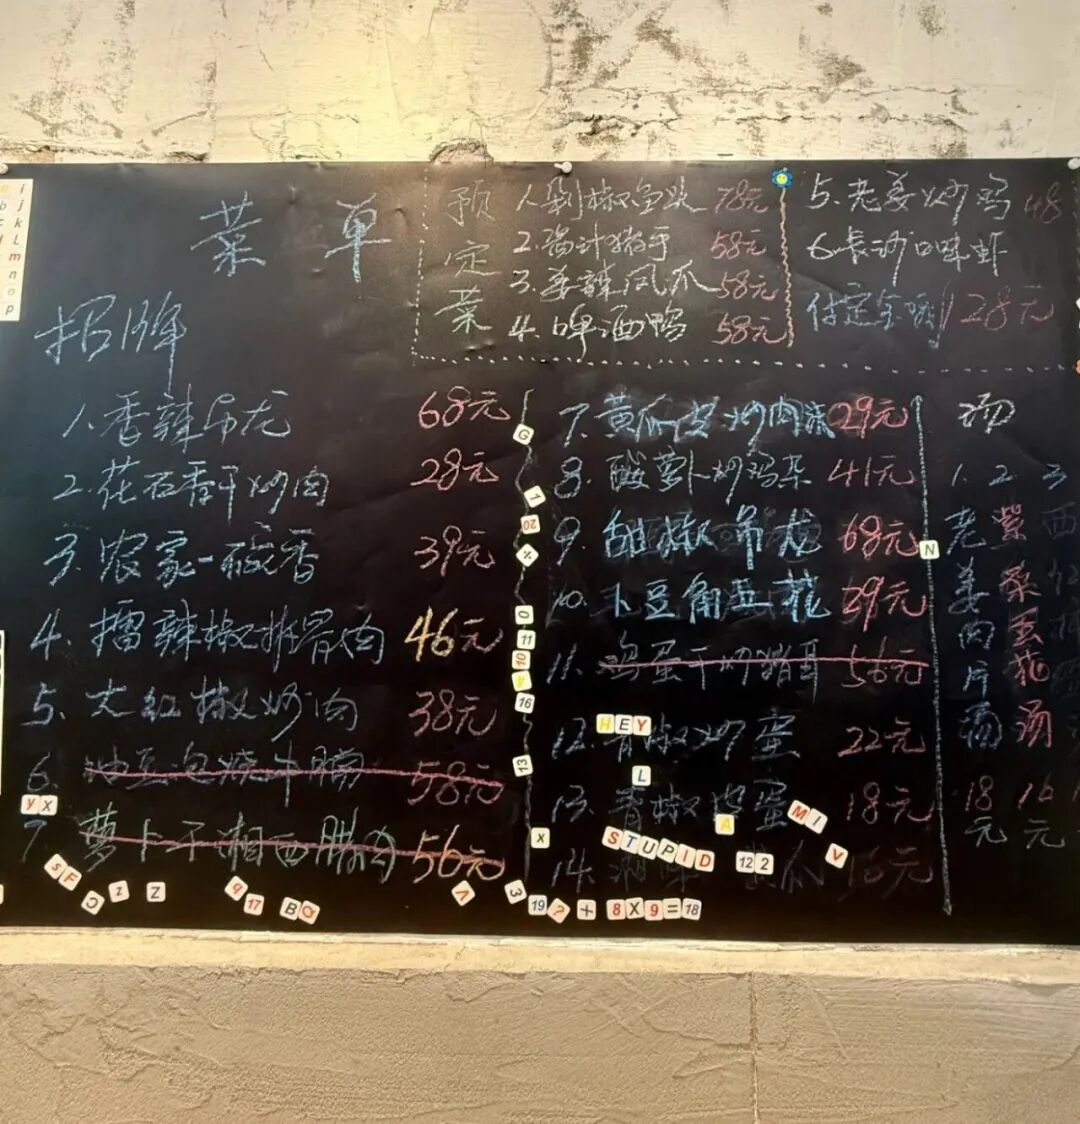 菜单
预定菜
1.剁椒鱼头 78元
2.酱汁猪手 58元
3.姜辣凤爪 58元
4.啤酒鸭 58元
5.老姜炒鸡 48
6.长沙口味虾
128元
招牌
1.香辣吊龙 68元
2.花石香干炒肉 28元
3.农家一碗香 39元
4.擂辣椒拌骨肉 46元
5.大红椒炒肉 38元
6.油豆泡烧牛腩 58元
7 萝卜干湘西腊肉 56元
7.黄瓜皮炒肉沫 29元
8.酸萝卜炒鸡杂 41元
9.甜椒吊龙 68元
10.卜豆角 29元
11.鸡蛋干炒猪耳 56元
12.青椒炒蛋 22元
13.青椒皮蛋 18元
14.湘味
汤
1.老姜肉片汤 18元
2 紫菜蛋花汤 16元
3 西红
i
j
k
L
m
n
o
p
G
1
20
%
0
11
10
4
16
13
N
HEY
L
A
MI
V
STUPID
12 2
X
YX
SF
C
z
Z
9
17
B
3
19 ? + 8X9=18